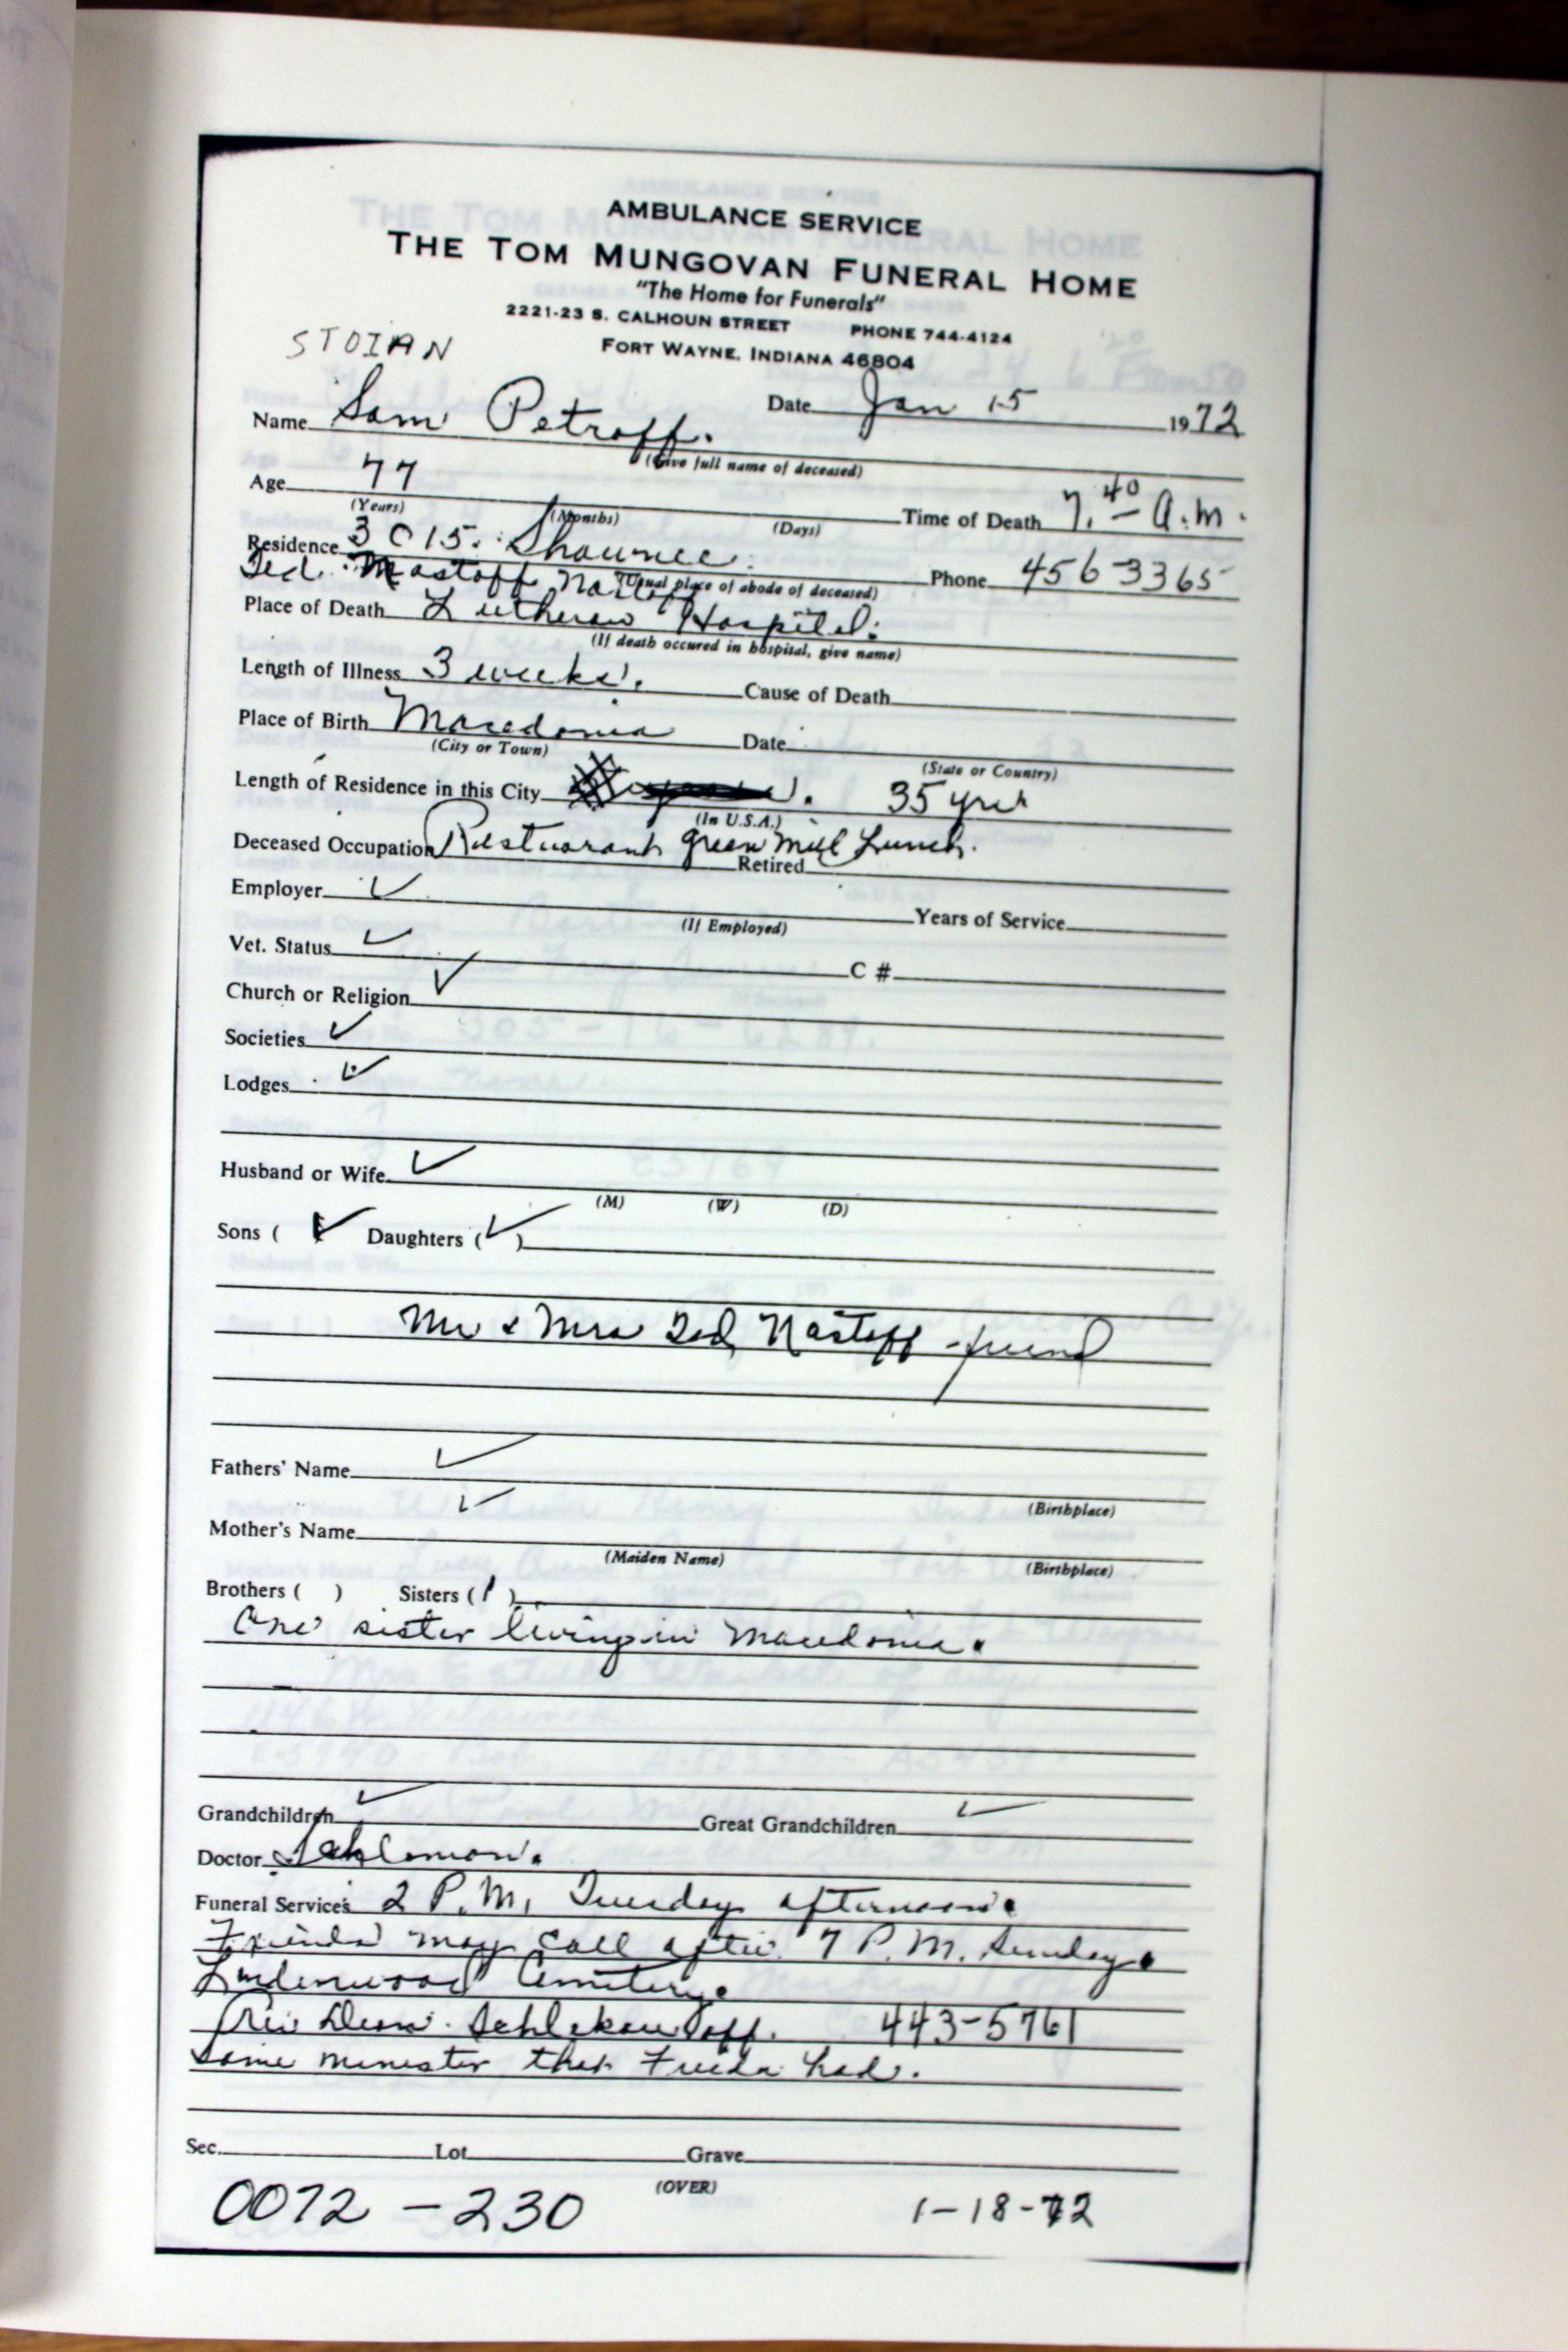 AMBULANCE SERVICE
THE TOM MUNGOVAN FUNERAL HOME
"The Home for Funerals"
2221-23 S. CALHOUN STREET PHONE 744-4124
FORT WAYNE, INDIANA 46804
STOIAN
Date Jan 15 1972
Name Sam Petroff.
(Give full name of deceased)
Age 77
(Years) (Months) (Days)
Time of Death 7.40 A.M.
Residence 3015. Shawnee.
(Usual place of abode of deceased)
Phone 456-3365
Ted. Nastoff
Place of Death Lutheran Hospital.
(If death occured in hospital, give name)
Length of Illness 3 weeks. Cause of Death
Place of Birth Macedonia Date
(City or Town) (State or Country)
Length of Residence in this City 35 yrs
(In U.S.A.)
Deceased Occupation Restuarant Green Mill Lunch.
Retired
Employer
(If Employed) Years of Service
Vet. Status C #
Church or Religion
Societies
Lodges
Husband or Wife
(M) (W) (D)
Sons ( Daughters ( )
Mr & Mrs Ted Nastoff - friend
Fathers' Name
(Birthplace)
Mother's Name
(Maiden Name) (Birthplace)
Brothers ( ) Sisters (1)
One sister living in Macedonia.
Grandchildren Great Grandchildren
Doctor Schlomon.
Funeral Services 2 P.M. Tuesday afternoon.
Friends may call after 7 P.M. Sunday.
Lindenwood Cemetery.
443-5761
Same minester that Frieda had.
Sec. Lot Grave
(OVER)
0072-230 1-18-72